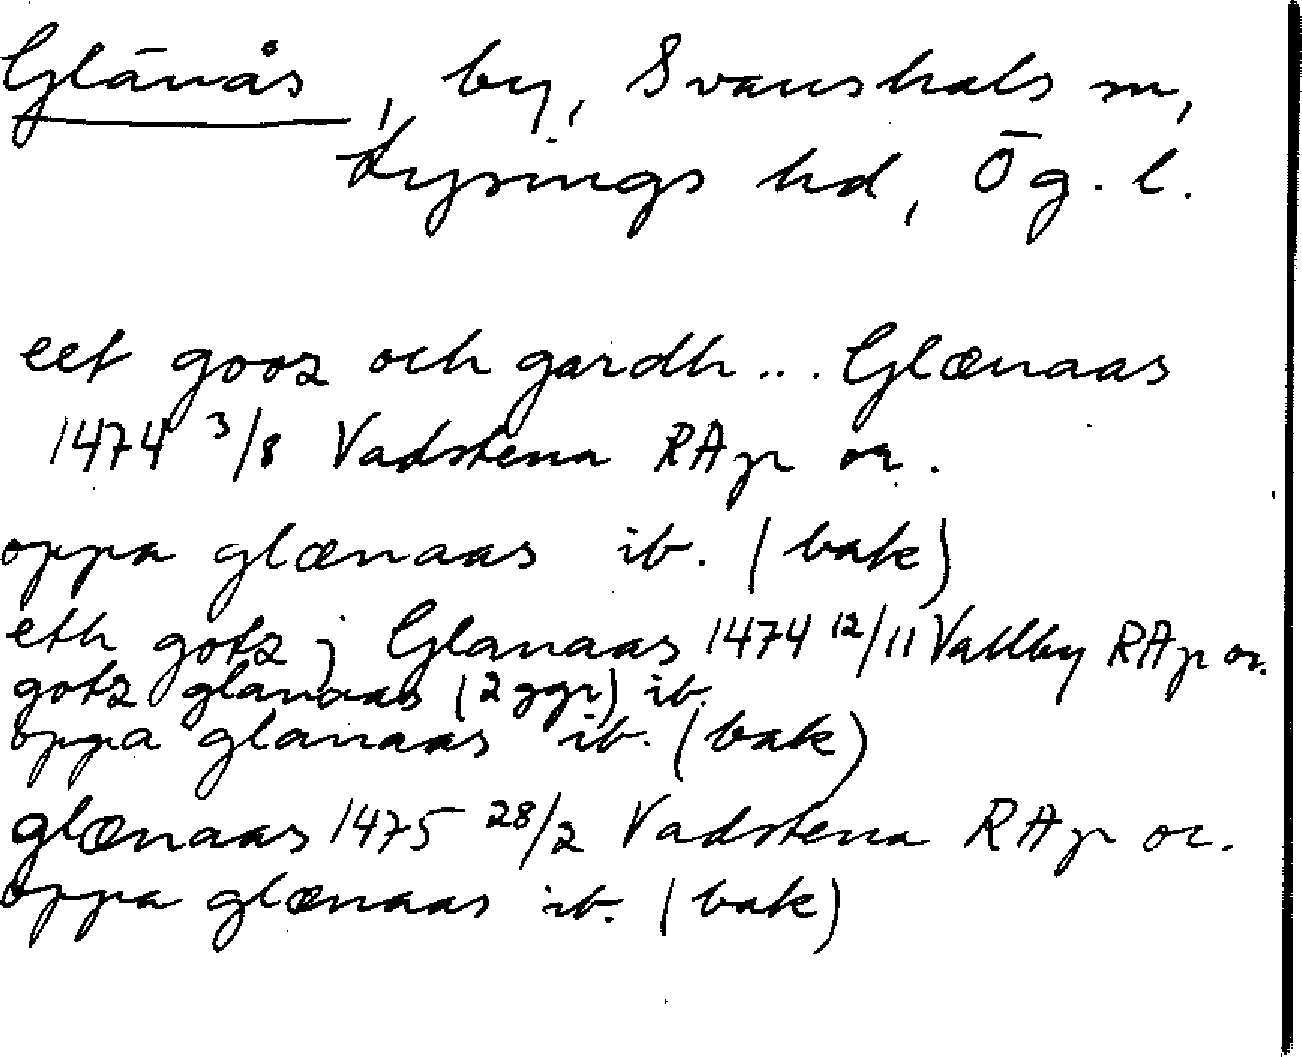 Glänås, by, Svanshals sn,
Lysings hd, Ög. l.
eet gooz och gardh... Glænaas
1474 3/8 Vadstena RAp or.
oppa glænaas ib. (bak)
eth gotz j Glanaas 1474 12/11 Vallby RAp or.
gotz glanaas (2 ggr) ib.
oppa glanaas ib. (bak)
glænaas 1475 28/2 Vadstena RAp or.
oppa glænaas ib. (bak)